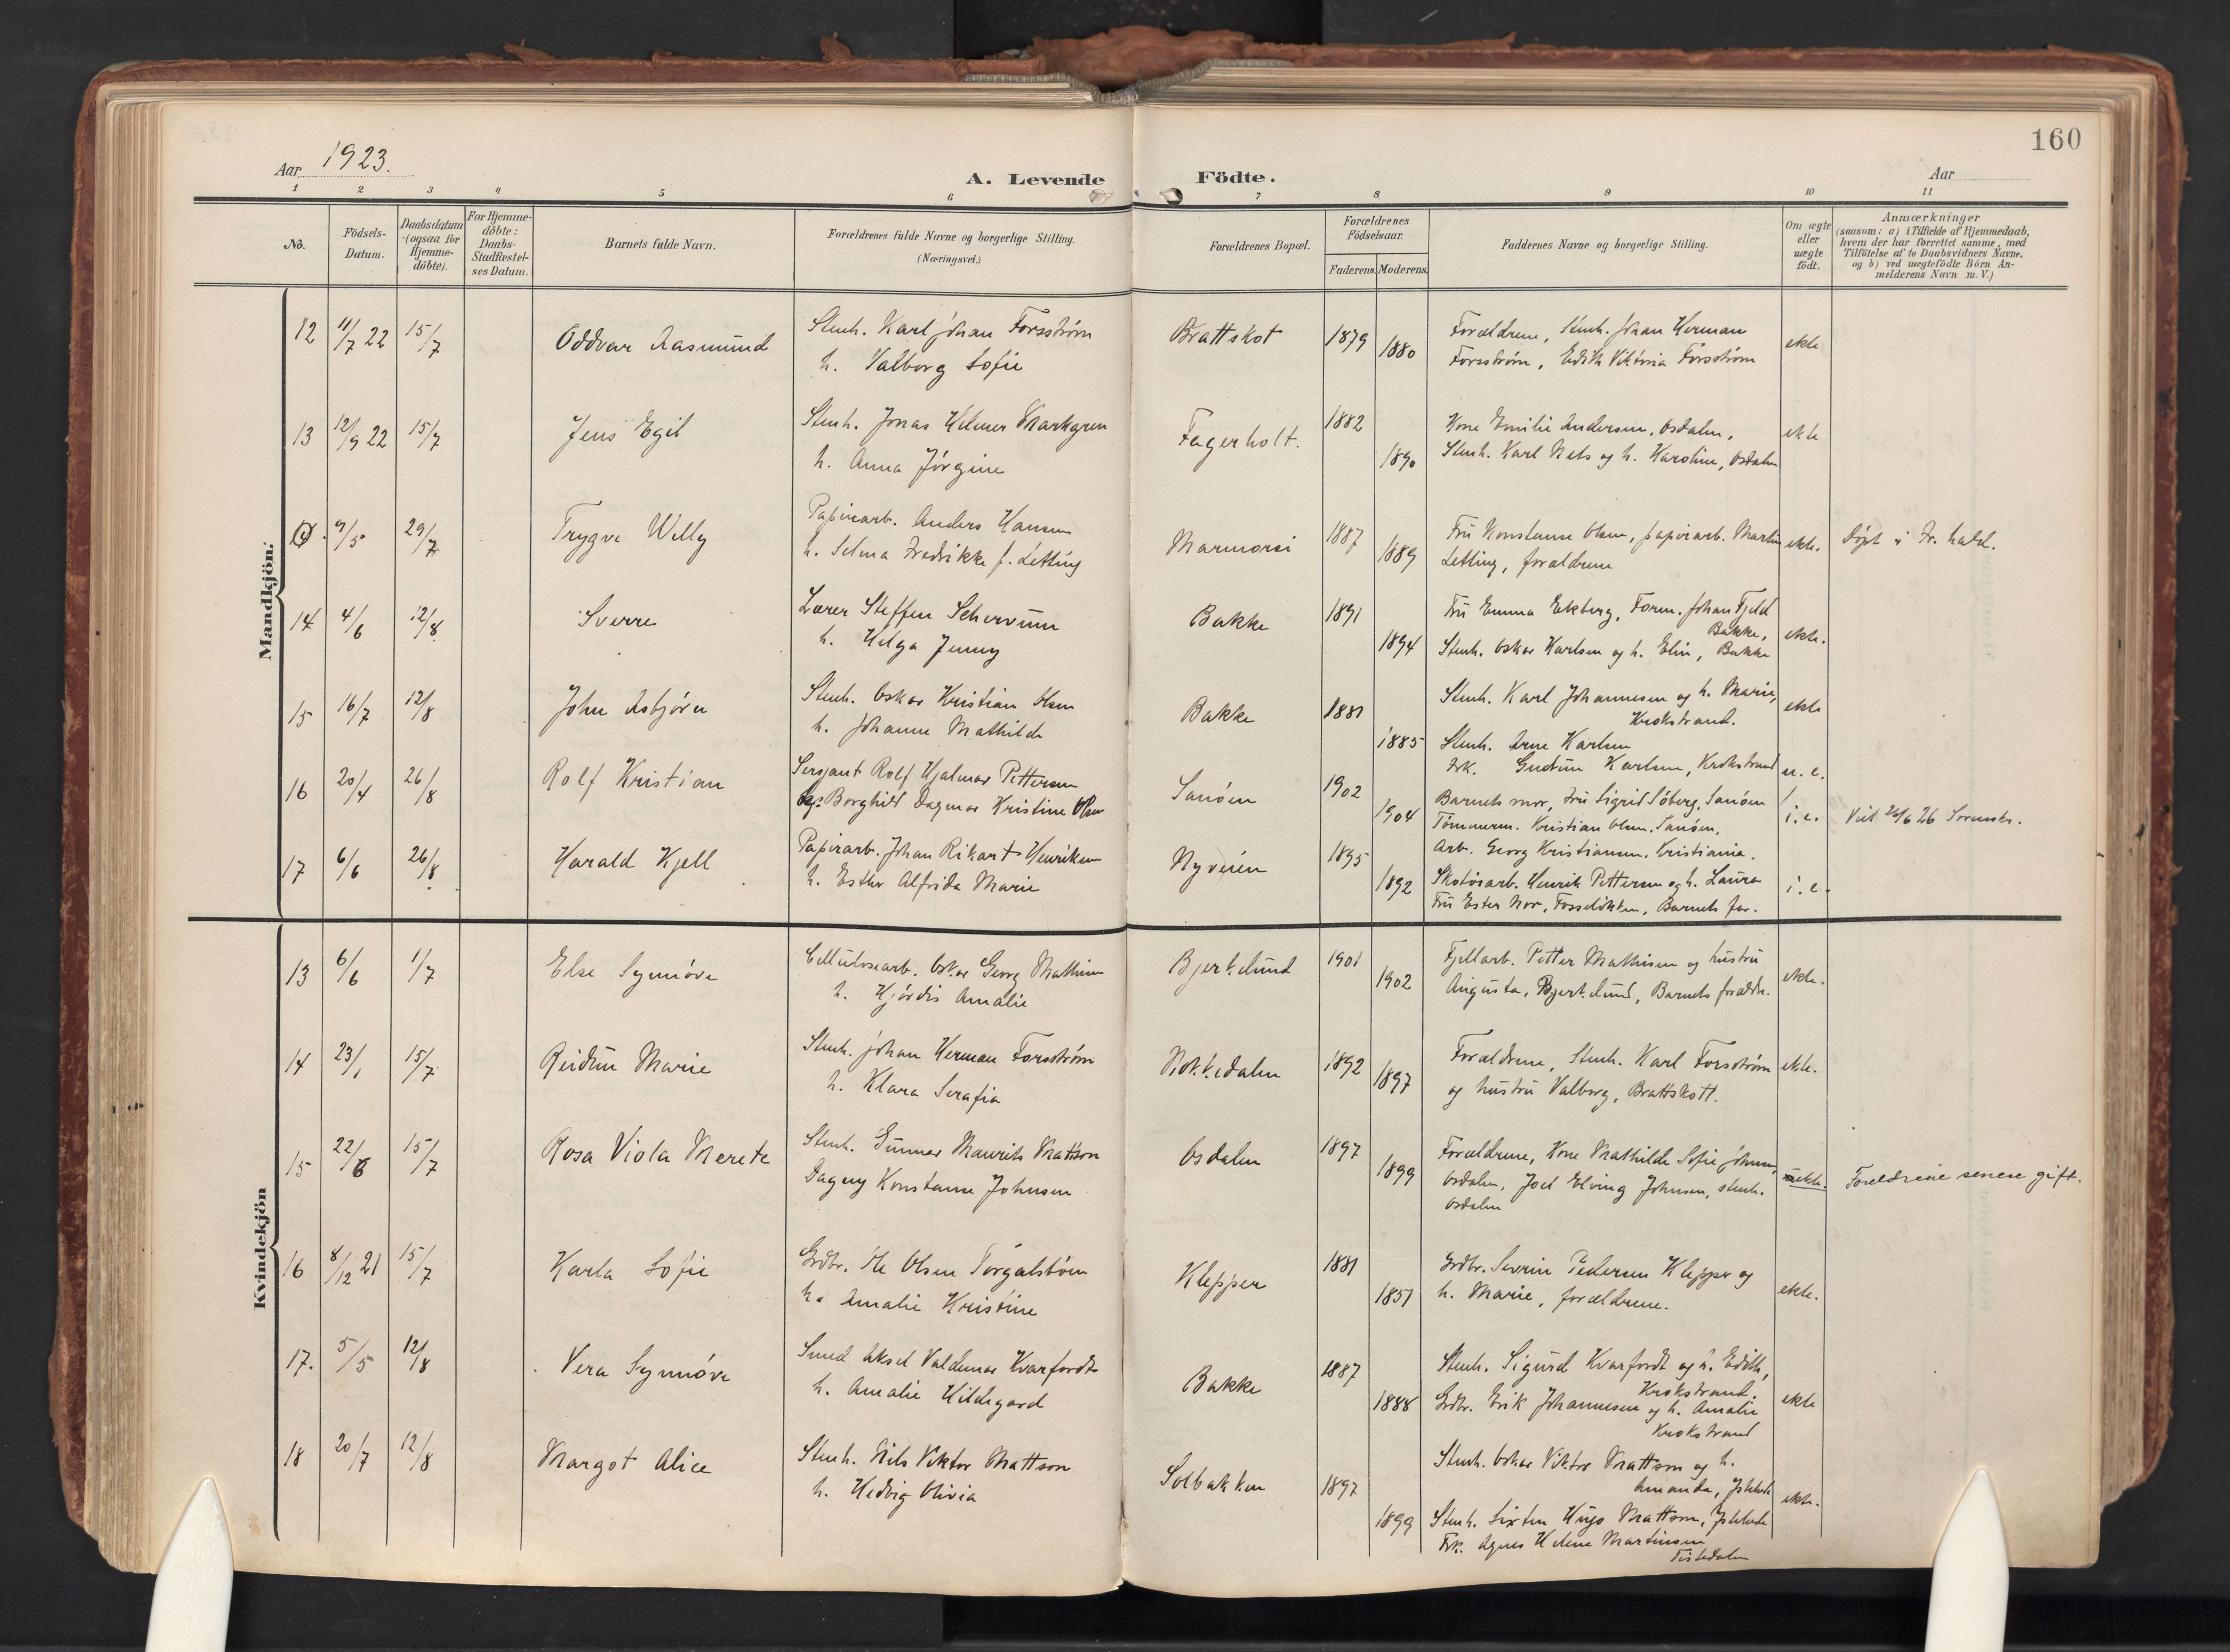 160
Aar 1923.
A. Levende Födte.
Aar
1 2 3 4 5 6 7 8 9 10 11
No.
Födsels-
Datum.
Daabsdatum
(ogsaa for
Hjemme-
döbte).
For Hjemme-
döbte:
Daabs-
Stadfæstel-
ses Datum.
Barnets fulde Navn.
Forældrenes fulde Navne og borgerlige Stilling.
(Næringsvei.)
Forældrenes Bopæl.
Forældrenes
Födselsaar.
Faderens. Moderens.
Faddernes Navne og borgerlige Stilling.
Om ægte
eller
uægte
födt.
Anmærkninger
(saasom: a) i Tilfælde af Hjemmedaab,
hvem der har forrettet samme, med
Tilföielse af to Daabsvidners Navne,
og b) ved uægtefödte Börn An-
melderens Navn m. V.)
Mandkjön:
12 11/7 22 15/7 Oddvar Aasmund
Stenh. Karl Johan Forsström
h. Valborg Sofie
Brattskot 1879 1880
Forældrene, Stenh. Johan Herman
Forsström, Edith Viktoria Forsström
ekte
13 12/9 22 15/7 Jens Egil
Stenh. Jonas Helmer Markgren
h. Anna Jörgine
Fagerholt. 1882 1890
Kone Emilie Andersen, Osdalen,
Stenh. Karl Nets og h. Karoline, Osdalen
ekte
9/5 29/7 Trygve Willy
Papirarb. Anders Hansen
h. Selma Fredrikke f. Letting
Marmorsi 1887 1889
Fru Konstanse Olsen, papirarb. Martin
Letting, forældrene
ekte.
Döpt i Fr. hald.
14 4/6 12/8 Sverre
Lærer Steffen Schervum
h. Helga Jenny
Bakke 1891 1894
Fru Emma Ekberg, Form. Johan Fjeld
Bakke,
Stenh. Oskar Karlsen og h. Elin, Bakke
ekte.
15 16/7 12/8 John Asbjörn
Stenh. Oskar Kristian Olsen
h. Johanne Mathilde
Bakke 1881 1885
Stenh. Karl Johannesen og h. Marie,
Krokstrand.
Stenh. Arne Karlsen
Frk. Gudrun Karlsen, Krokstrand
ekte
16 20/4 26/8 Rolf Kristian
Sersjant Rolf Hjalmar Pettersen
og Borghild Dagmar Kristine Olsen
Sanöen 1902 1904
Barnets mor, Fru Sigrid Söberg, Sanöen
Tömmerm. Kristian Olsen, Sanöen,
Arb. Georg Kristiansen, Kristiania.
u. e.
i. e.
26/6 26
17 6/6 26/8 Harald Kjell
Papirarb. Johan Rikart Henriksen
h. Esther Alfrida Marie
Nyveien 1895 1892
Skotöiarb. Henrik Pettersen og h. Laura
Fru Ester Nor, Fosselökken, Barnets far.
i. e.
Kvindekjön
13 6/6 1/7 Else Synnöve
Cellulosearb. Oskar Georg Mathisen
h. Hjördis Amalie
Bjerkelund 1901 1902
Fjellarb. Petter Mathisen og hustru
Augusta, Bjerkelund, Barnets forældre.
ekte.
14 23/1 15/7 Reidun Marie
Stenh. Johan Herman Forsström
h. Klara Serafia
Nokkedalen 1892 1897
Forældrene, Stenh. Karl Forsström
og hustru Valborg, Brattskott.
ekte.
15 22/6 15/7 Rosa Viola Merete
Stenh. Gunnar Mauritz Mattson
Dagny Konstanse Johnsen
Osdalen 1897 1899
Forældrene, Kone Mathilde Sofie Johnsen,
Osdalen, Joel Elving Johnsen, stenh.
Osdalen
uekte.
Foreldrene senere gift.
16 8/12 21 15/7 Karla Sofie
Grdbr. Ole Olsen Torgalsböen
h. Amalie Kristine
Klepper 1881 1851
Grdbr. Severin Pedersen Klepper og
h. Marie, forældrene.
ekte.
17. 5/5 12/8 Vera Synnöve
Smed Aksel Valdemar Kvarfordt
h. Amalie Hildegard
Bakke 1887 1888
Stenh. Sigurd Kvarfordt og h. Edith,
Krokstrand.
Grdbr. Erik Johannesen og h. Amalie
Krokstrand
ekte
18 20/7 12/8 Margot Alice
Stenh. Nils Viktor Mattson
h. Hedvig Olivia
Solbakken 1897 1899
Stenh. Oskar Viktor Mattson og h.
Amanda,
Stenh. Sixten Hugo Mattson,
Frk. Agnes Helene Martinsen
Tistedalen
ekte.